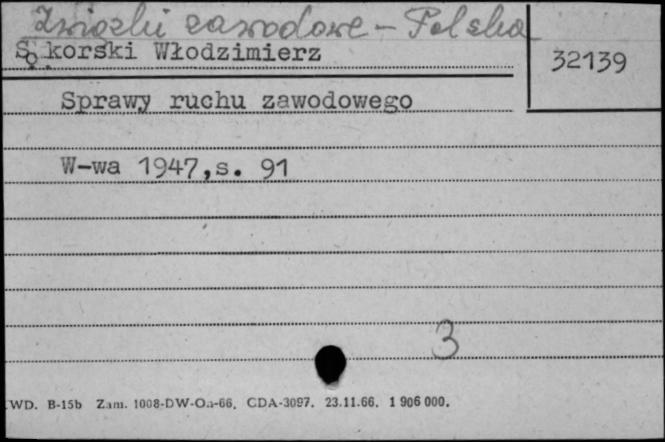 Związki zawodowe - Polska
Sokorski Włodzimierz
32139
Sprawy ruchu zawodowego
W-wa 1947,s. 91
3
WD. B-15b Zam. 1008-DW-On-66. CDA-3097. 23.11.66. 1 906 000.